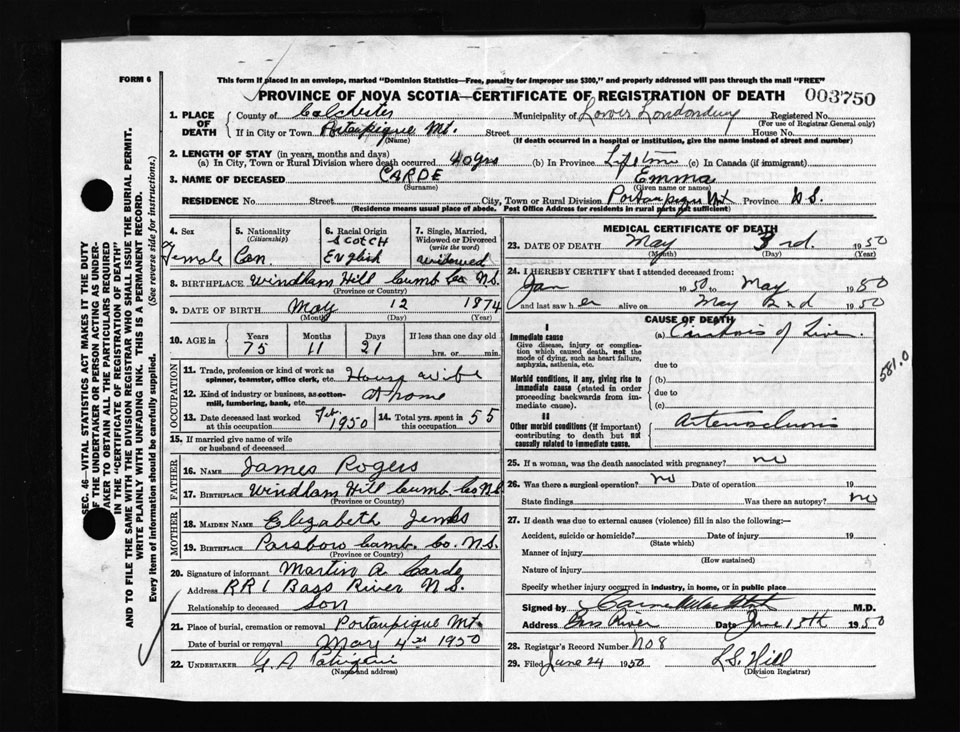 FORM 6
This form if placed in an envelope, marked "Dominion Statistics—Free, penalty for improper use $300," and properly addressed will pass through the mail "FREE"
PROVINCE OF NOVA SCOTIA—CERTIFICATE OF REGISTRATION OF DEATH 003750
1. PLACE OF DEATH
County of Colchester Municipality of Lower Londonderry Registered No.
(For use of Registrar General only)
If in City or Town Portaupique Mt. Street House No.
(Name) (If death occurred in a hospital or institution, give the name instead of street and number)
2. LENGTH OF STAY (in years, months and days)
(a) In City, Town or Rural Division where death occurred 40 yrs (b) In Province Lifetime (c) In Canada (if immigrant)
3. NAME OF DECEASED CARDE Emma
(Surname) (Given name or names)
RESIDENCE No. Street City, Town or Rural Division Portaupique Mt Province N.S.
(Residence means usual place of abode. Post Office Address for residents in rural parts not sufficient)
4. Sex
Female
5. Nationality
(Citizenship)
Can.
6. Racial Origin
SCOTCH
English
7. Single, Married, Widowed or Divorced
(write the word)
widowed
8. BIRTHPLACE Windham Hill Cumb Co N.S.
(Province or Country)
9. DATE OF BIRTH May 12 1874
(Month) (Day) (Year)
10. AGE in Years Months Days If less than one day old
75 11 21 hrs. or min.
OCCUPATION
11. Trade, profession or kind of work as spinner, teamster, office clerk, etc. House wife
12. Kind of industry or business, as cotton-mill, lumbering, bank, etc. at home
13. Date deceased last worked at this occupation Feb. 1950
14. Total yrs. spent in this occupation 55
15. If married give name of wife or husband of deceased
FATHER
16. NAME James Rogers
17. BIRTHPLACE Windham Hill Cumb. Co N.S.
(Province or Country)
MOTHER
18. MAIDEN NAME Elizabeth
19. BIRTHPLACE Parsboro Cumb. Co. N.S.
(Province or Country)
20. Signature of informant Martin A. Carde
Address RR 1 Bass River N.S.
Relationship to deceased Son
21. Place of burial, cremation or removal Portaupique Mt.
Date of burial or removal May 4 1950
22. UNDERTAKER G. A
(Name and address)
MEDICAL CERTIFICATE OF DEATH
23. DATE OF DEATH May 3rd. 1950
(Month) (Day) (Year)
24. I HEREBY CERTIFY that I attended deceased from:
Jan 1950 to May 1950
and last saw her alive on May 2nd 1950
CAUSE OF DEATH
I
Immediate cause
Give disease, injury or complication which caused death, not the mode of dying, such as heart failure, asphyxia, asthenia, etc.
(a) Cirrhosis of Liver.
due to
Morbid conditions, if any, giving rise to immediate cause (stated in order proceeding backwards from immediate cause).
(b)
due to
(c)
II
Other morbid conditions (if important) contributing to death but not causally related to immediate cause.
Arteriosclerosis
581.0
25. If a woman, was the death associated with pregnancy? no
26. Was there a surgical operation? no Date of operation 19
State findings Was there an autopsy? no
27. If death was due to external causes (violence) fill in also the following:—
Accident, suicide or homicide? Date of injury 19
(State which)
Manner of injury
(How sustained)
Nature of injury
Specify whether injury occurred in industry, in home, or in public place
Signed by M.D.
Address Bass River Date June 15th 1950
28. Registrar's Record Number No 8
29. Filed June 24 1950 L.S. Hill
(Division Registrar)
SEC. 46—VITAL STATISTICS ACT MAKES IT THE DUTY
OF THE UNDERTAKER OR PERSON ACTING AS UNDER-
TAKER TO OBTAIN ALL THE PARTICULARS REQUIRED
IN THE "CERTIFICATE OF REGISTRATION OF DEATH"
AND TO FILE THE SAME WITH THE DIVISION REGISTRAR WHO SHALL ISSUE THE BURIAL PERMIT.
WRITE PLAINLY WITH UNFADING INK. THIS IS A PERMANENT RECORD.
Every item of information should be carefully supplied. (See reverse side for instructions.)